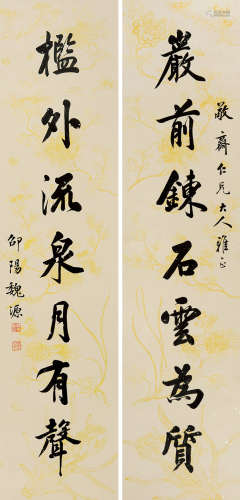 敬齋仁兄大人雅正
嚴前鍊石雲為質
檻外流泉月有聲
邵陽魏源